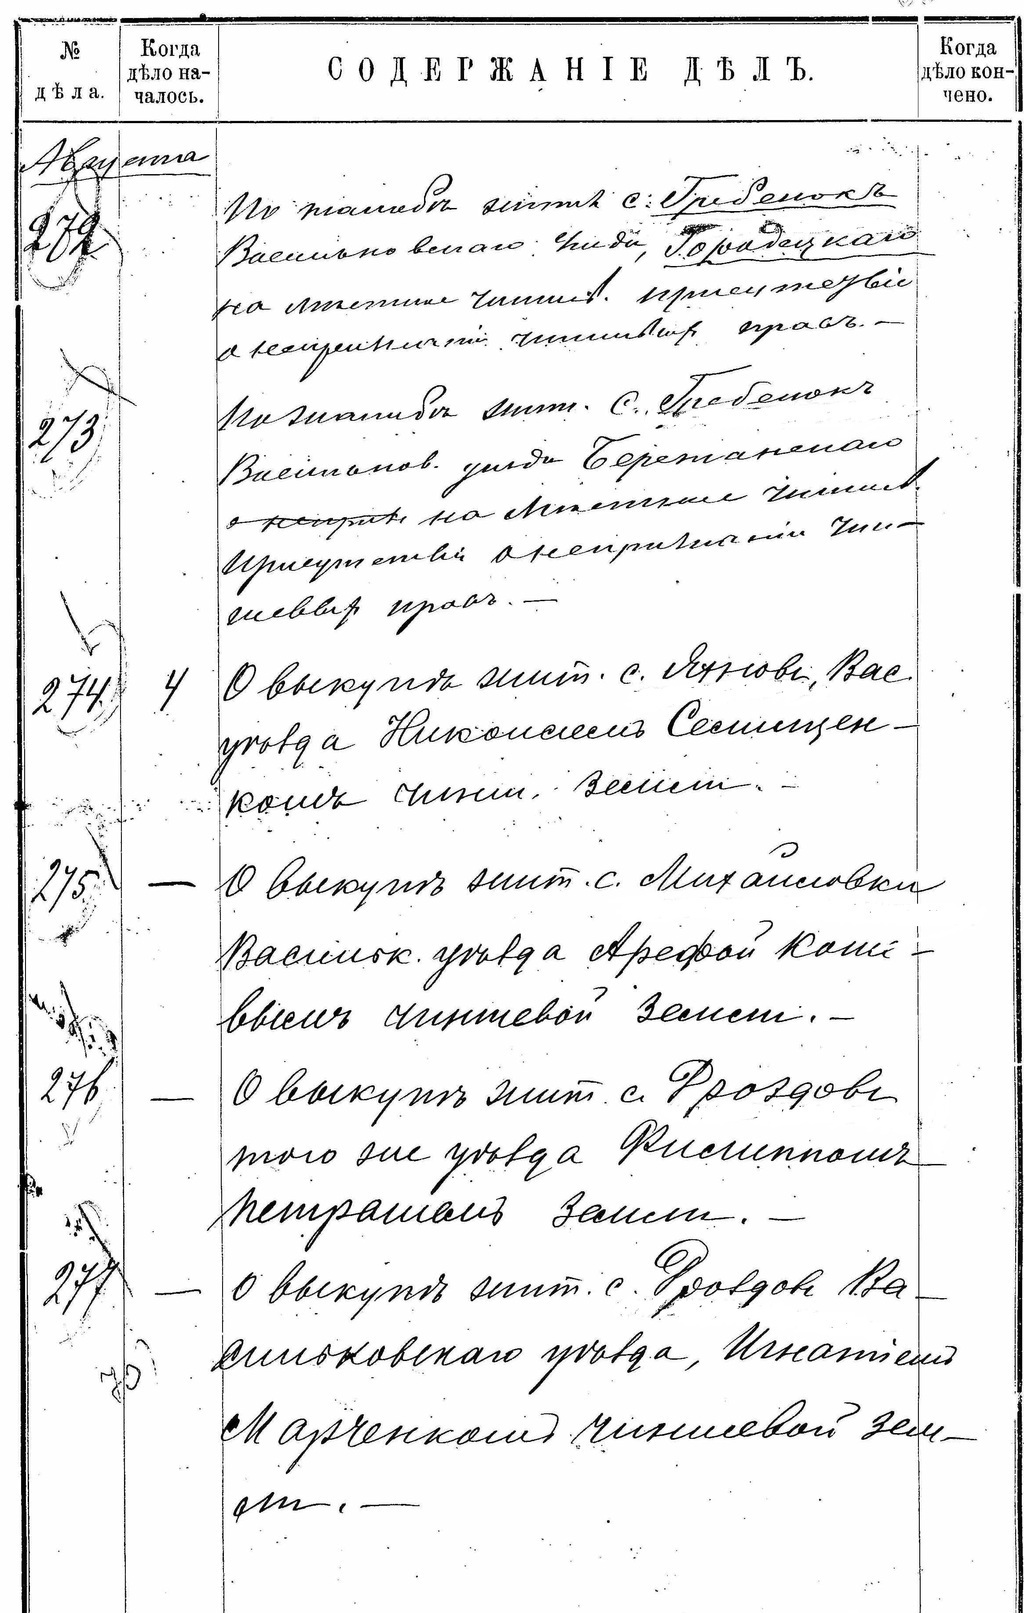 № дѣла.
Когда дѣло началось.
СОДЕРЖАНІЕ ДѢЛЪ.
Когда дѣло кончено.
Августа
272
По жалобѣ жител. с. Гребенокъ
Васильковскаго уѣзда, Городецкаго
на Мѣстное Чиншев. присутствіе
о непризнаніи чиншевыхъ правъ. —
273
По жалобѣ жит. с. Гребенокъ
Васильков. уѣзда Бережанскаго
на Мѣстное Чиншев.
Присутствіе о непризнаніи чин-
шевыхъ правъ. —
274 4 О выкупѣ жит. с. Яхновъ, Вас.
уѣзда Николаемъ Семищен-
комъ чинш. земли. —
275 — О выкупѣ жит. с. Михайловки
Васильк. уѣзда Арефой
чиншевой земли. —
276 — О выкупѣ жит. с. Дроздовъ
того же уѣзда Филиппомъ
Петрашемъ земли. —
277 — О выкупѣ жит. с. Дроздовъ Ва-
сильковскаго уѣзда, Игнатіемъ
Марченкомъ чиншевой зем-
ли. —